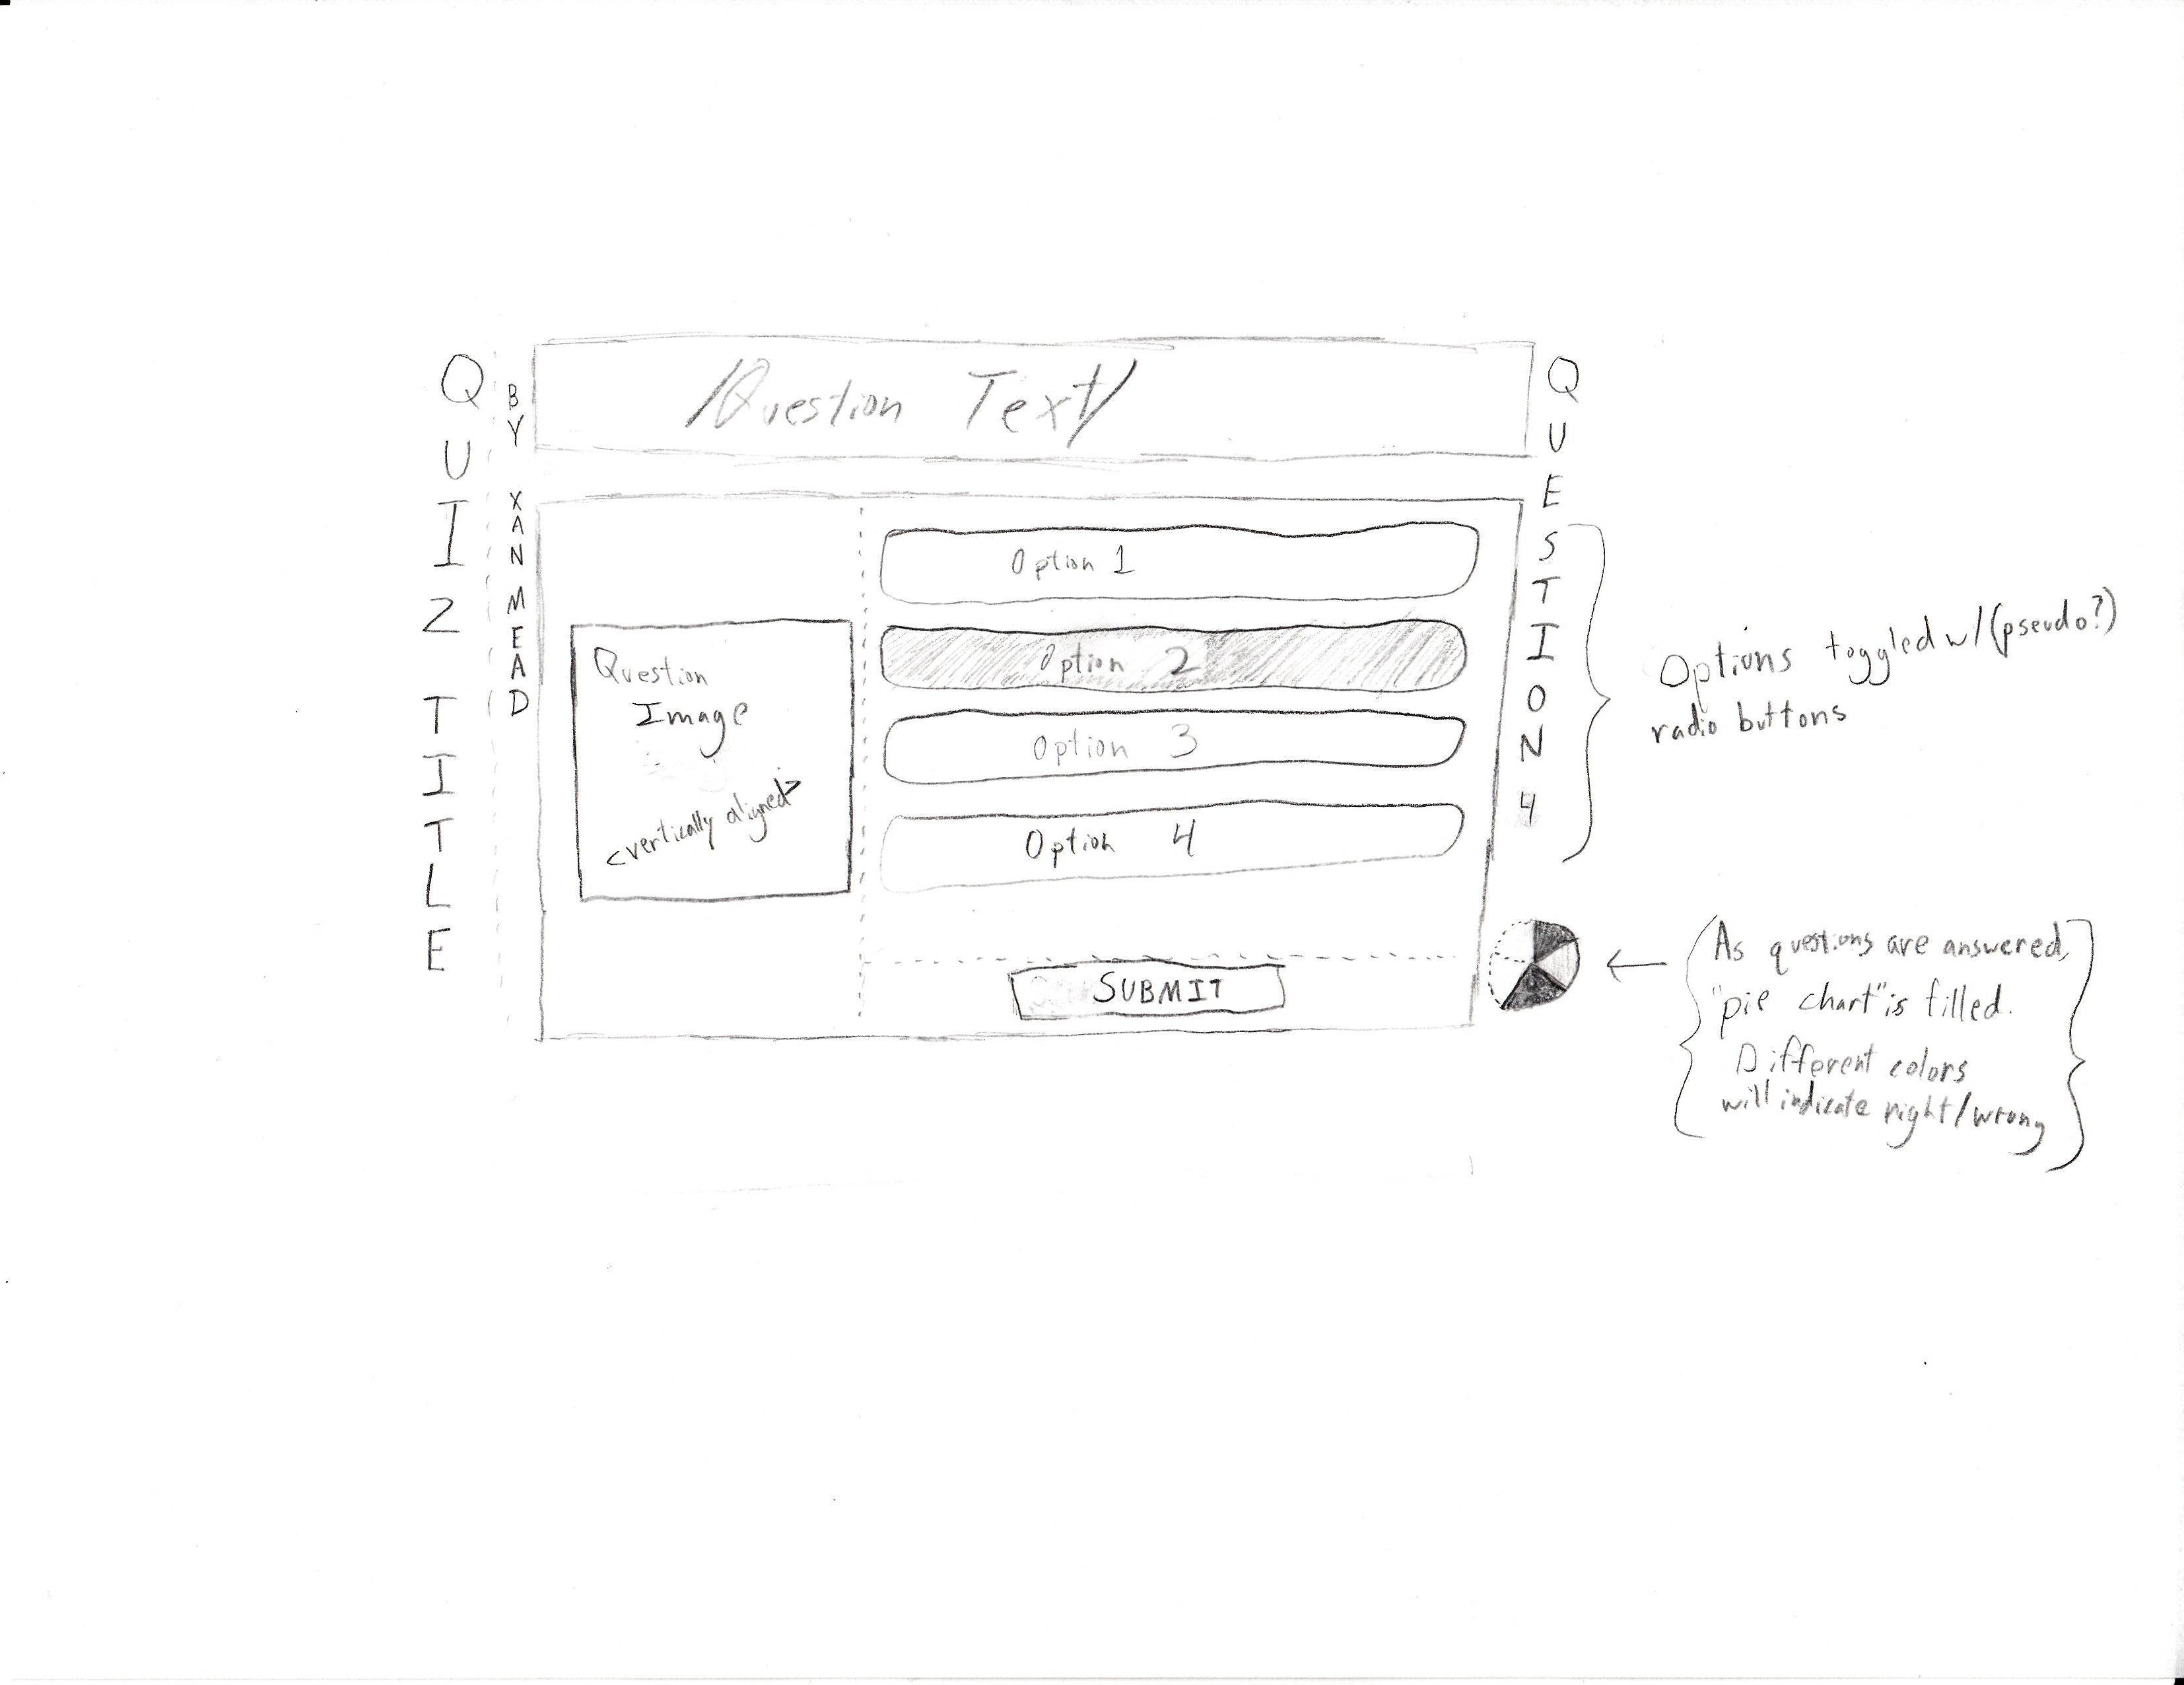 QUIZ TITLE
BY XAN MEAD
/Question Text/
Question
Image
<vertically aligned>
Option 1
Option 2
Option 3
Option 4
SUBMIT
QUESTION 4
Options toggled w/(pseudo?)
radio buttons
As questions are answered,
"pie chart" is filled.
Different colors
will indicate right/wrong